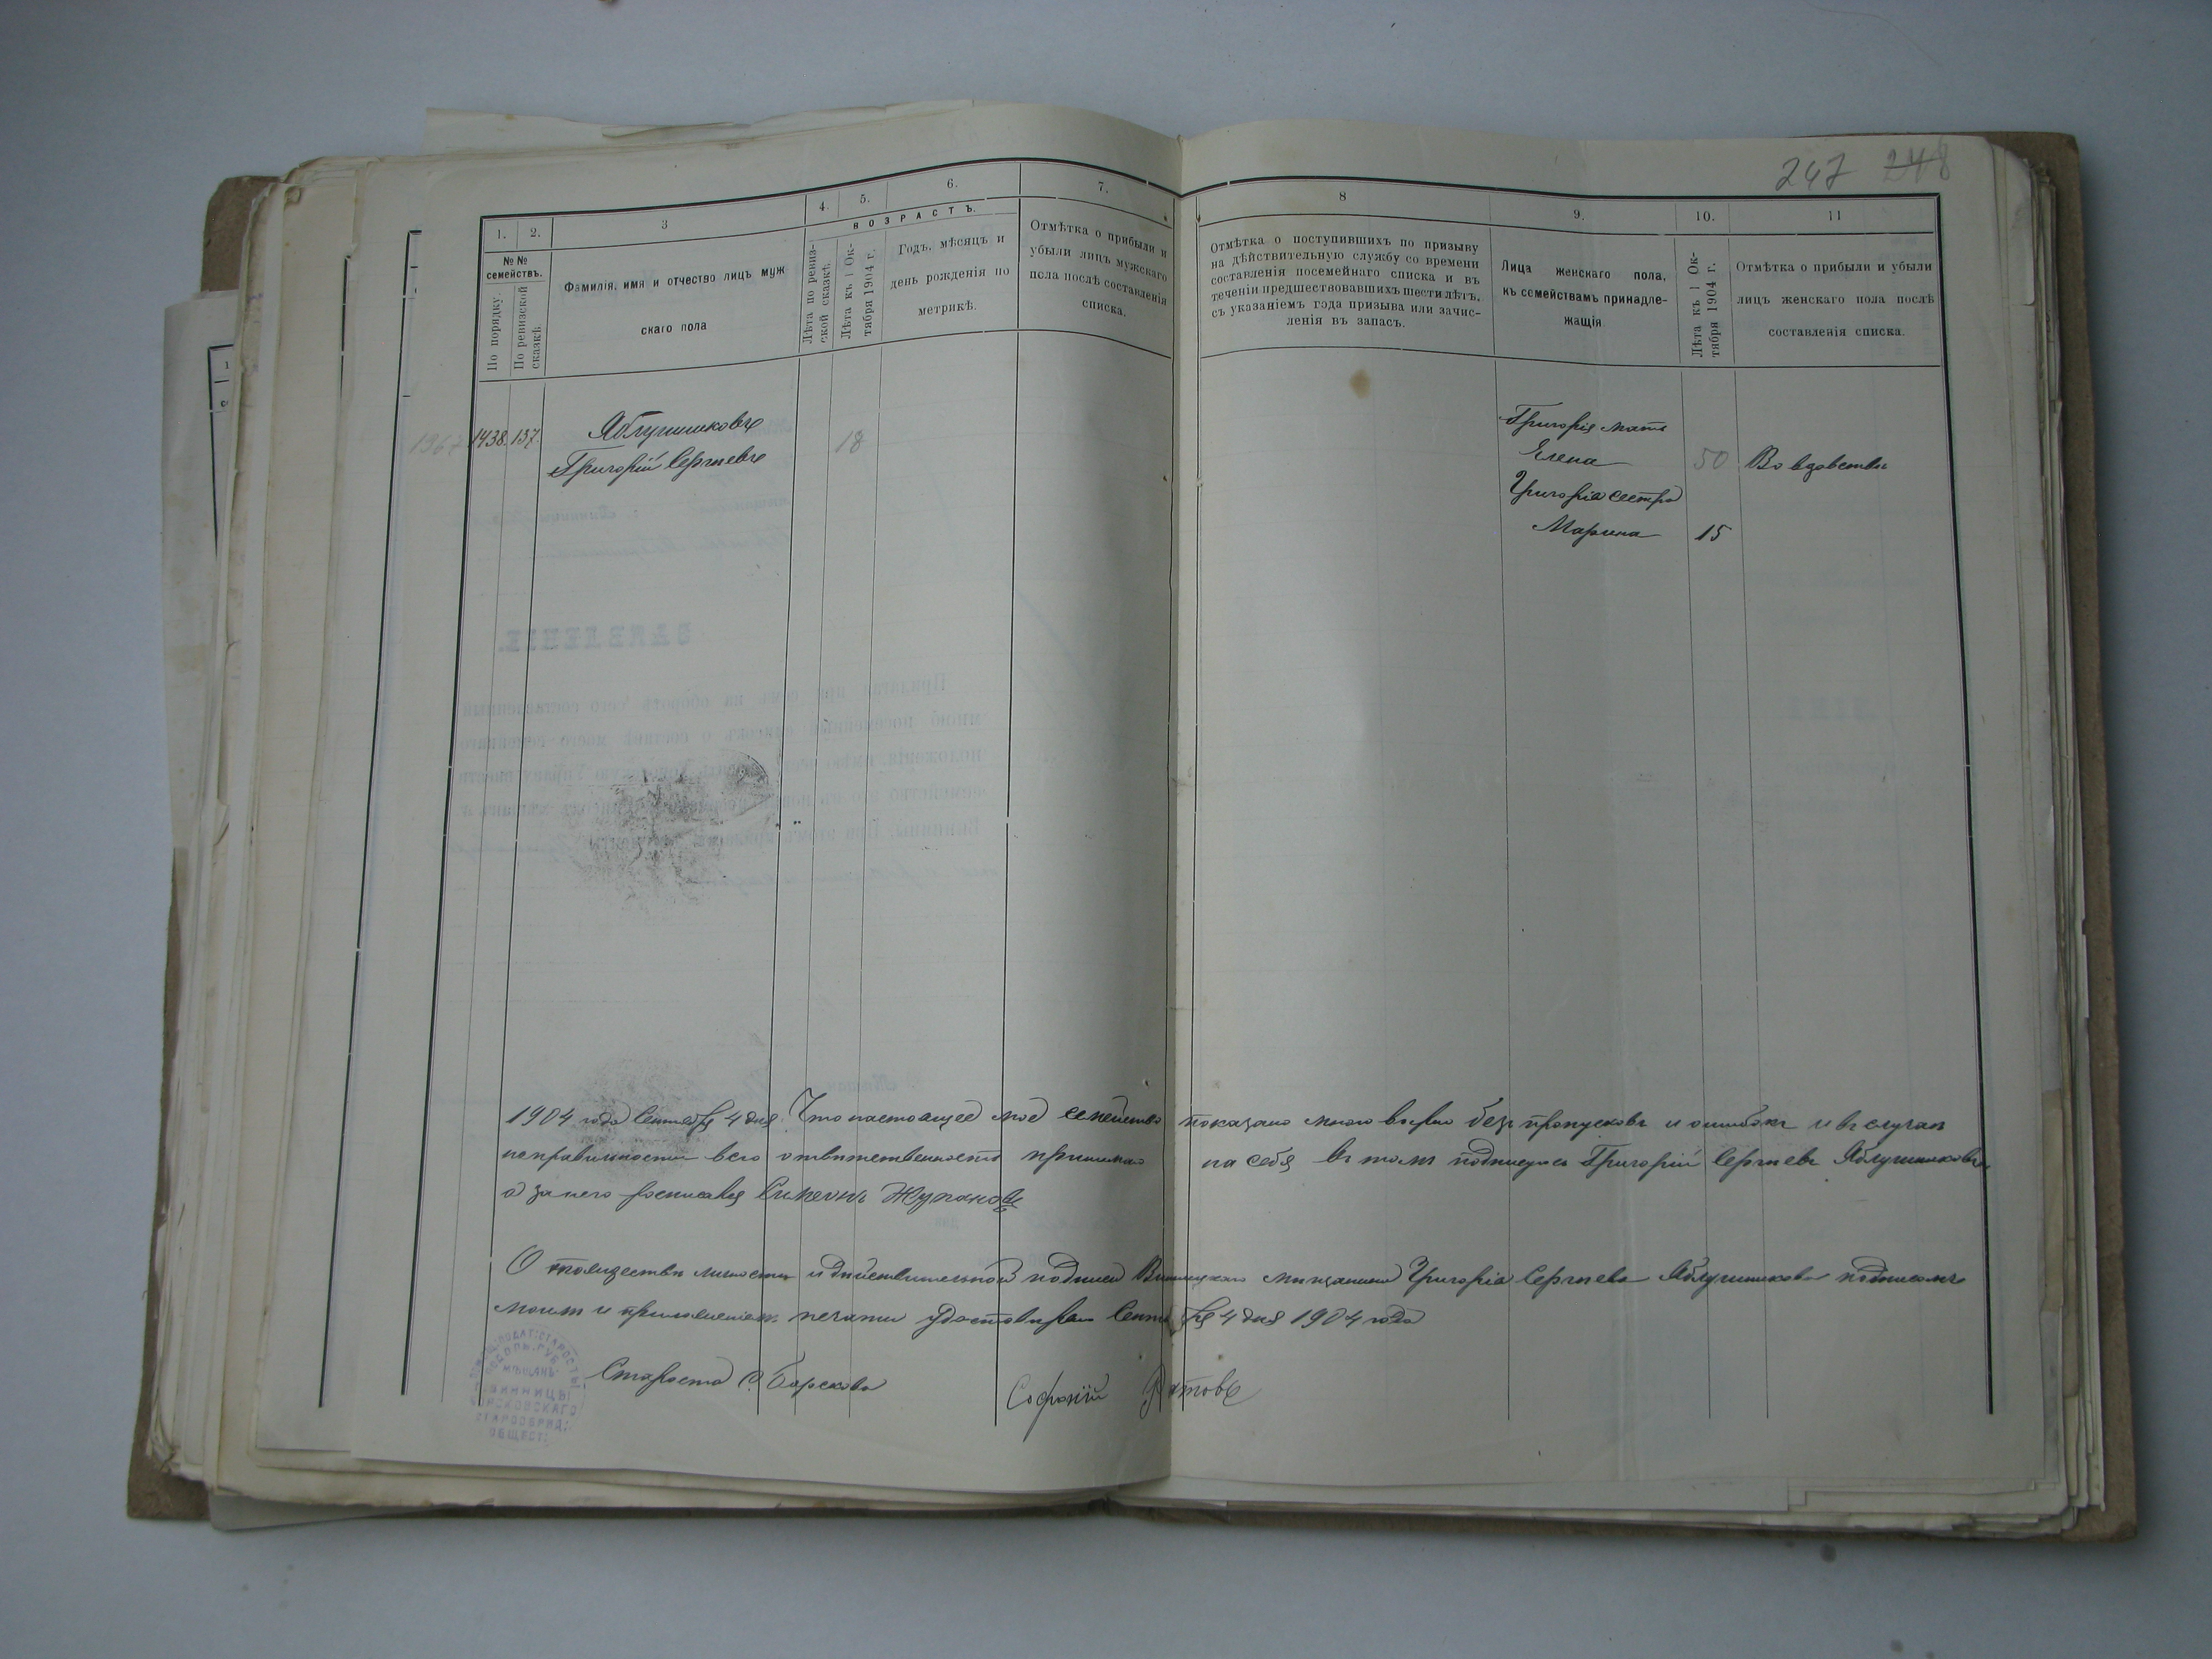 247 248
1. 2. 3 4. 5. 6. 7. 8 9. 10. 11
№№ семействъ.
По порядку.
По ревизской сказкѣ.
Фамилія, имя и отчество лицъ муж
скаго пола
ВОЗРАСТЪ.
Лѣта по ревиз-
ской сказкѣ.
Лѣта къ 1 Ок-
тября 1904 г.
Годъ, мѣсяцъ и
день рожденія по
метрикѣ.
Отмѣтка о прибыли и
убыли лицъ мужскаго
пола послѣ составленія
списка.
Отмѣтка о поступившихъ по призыву
на дѣйствительную службу со времени
составленія посемейнаго списка и въ
теченіи предшествовавшихъ шести лѣтъ,
съ указаніемъ года призыва или зачис-
ленія въ запасъ.
Лица женскаго пола,
къ семействамъ принадле-
жащія
Лѣта къ 1 Ок-
тября 1904 г.
Отмѣтка о прибыли и убыли
лицъ женскаго пола послѣ
составленія списка.
1438. 137.
Яблучниковъ
Григорій Сергѣевъ
18
Григорія мать
Елена 50 Во вдовствѣ
Григорія сестра
Марина 15
1904 года Сентября 4 дня Что настоящее мое семейство показано мною вѣрно безъ пропусковъ и ошибокъ и въ случаѣ
неправильности всю отвѣтственность принимаю на себя въ томъ подписуюсь Григорій Сергѣевъ Яблучниковъ
а за него росписался Симеонъ
О тождествѣ личности и дѣйствительной подписи Винницкаго мѣщанина Григорія Сергѣева Яблучникова подписомъ
моимъ и приложеніемъ печати удостовѣряю Сентября 4 дня 1904 года
Староста С. Борсковъ
Софоній
ВИННИЦЫ
СТАРООБРЯД.
ОБЩЕСТ.
ЗАЯВЛЕНІЕ.